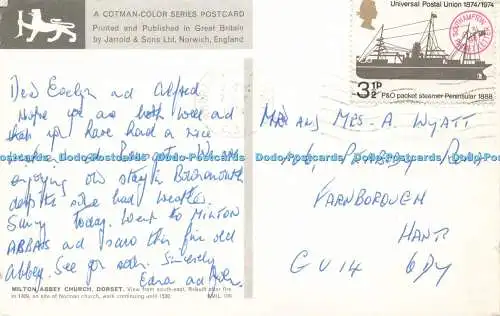 A COTMAN-COLOR SERIES POSTCARD
Printed and Published in Great Britain
by Jarrold & Sons Ltd, Norwich, England
Universal Postal Union 1874/1974
3½P
P&O packet steamer Peninsular 1888
Dear Evelyn and Alfred
Hope you are both well and
that you have had a nice
We are
enjoying our stay in Bournemouth
despite some bad weather.
Sunny today. Went to MILTON
ABBAS and saw this fine old
Abbey. See you soon. Sincerely
Edna and
MR AND MRS. A WYATT
FARNBOROUGH
HANTS
GU14 6DY
MILTON ABBEY CHURCH, DORSET. View from south-east. Rebuilt after fire
in 1309, on site of Norman church, work continuing until 1500